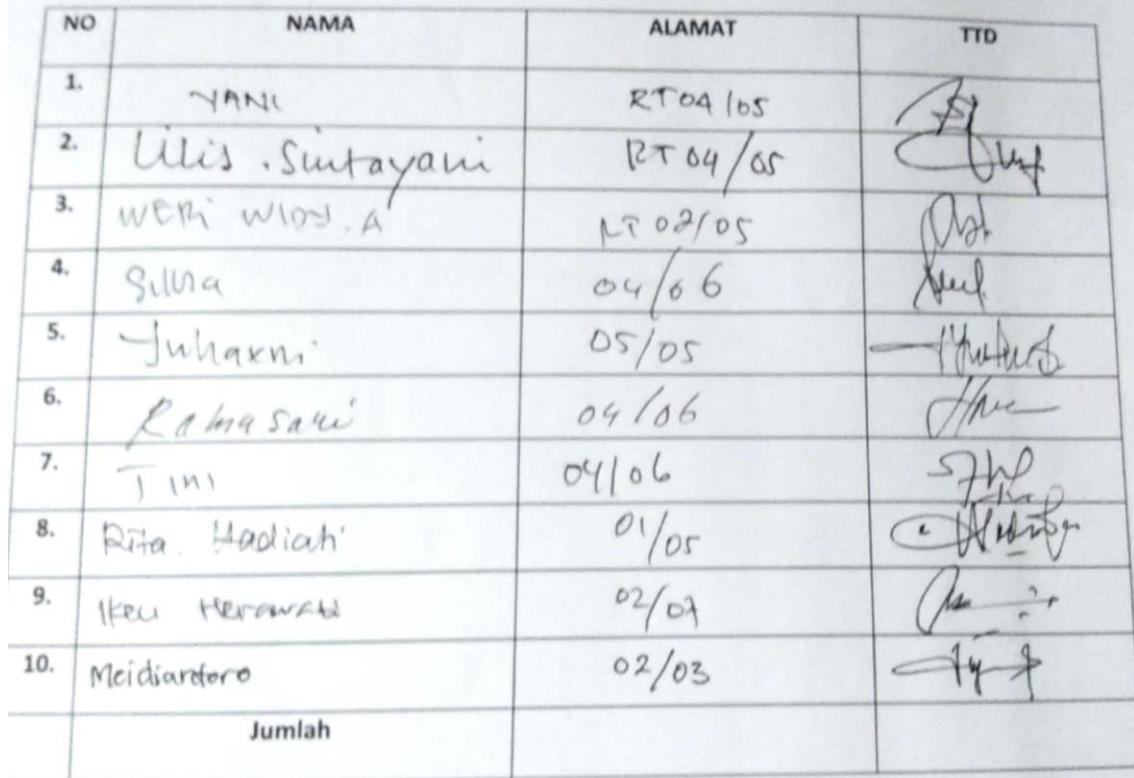 NO NAMA ALAMAT TTD
1. YANI RT 04/05
2. Lilis . Sintayani RT 04/05
3. WERI WIDY. A RT 02/05
4. Silvia 04/06
5. Juhaxni 05/05
6. Ratna sari 04/06
7. Tini 04/06
8. Rita Hadiati 01/05
9. Ikeu Herawati 02/07
10. Meidiantoro 02/03
Jumlah